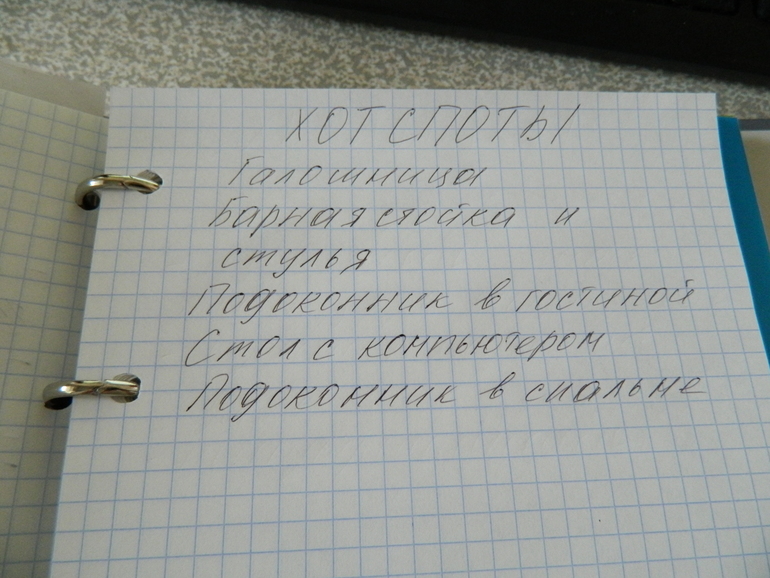 ХОТ СПОТЫ
Галошница
Барная стойка и
стулья
Подоконник в гостиной
Стол с компьютером
Подоконник в спальне